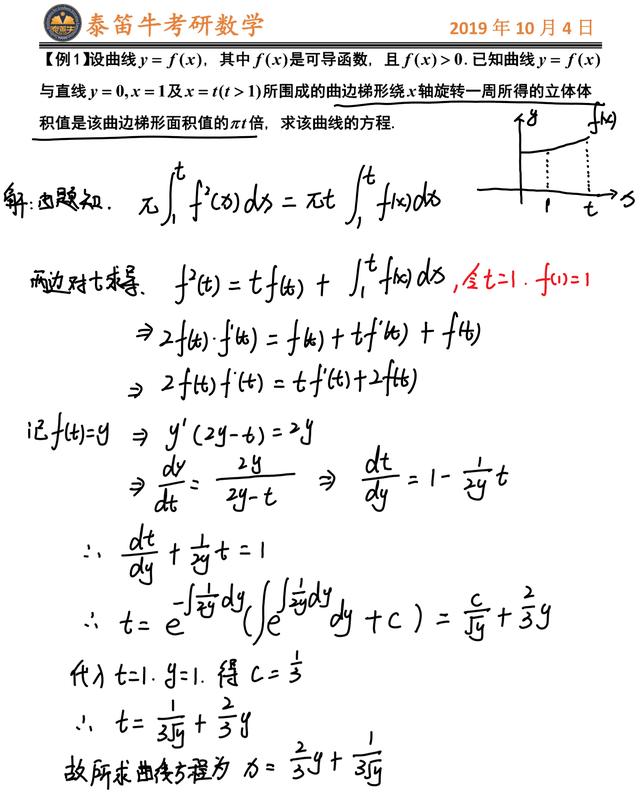 泰笛牛考研数学
2019 年 10 月 4 日
【例1】设曲线 y = f(x)，其中 f(x) 是可导函数，且 f(x) > 0. 已知曲线 y = f(x)
与直线 y = 0, x = 1 及 x = t(t > 1) 所围成的曲边梯形绕 x 轴旋转一周所得的立体体
积值是该曲边梯形面积值的 πt 倍，求该曲线的方程.
y f(x)
1 t x
解：由题知. π∫₁ᵗ f²(x)dx = πt ∫₁ᵗ f(x)dx
两边对t求导. f²(t) = t f(t) + ∫₁ᵗ f(x)dx, 令t=1. f(1)=1
⇒ 2f(t)·f'(t) = f(t) + tf'(t) + f(t)
⇒ 2f(t)f'(t) = tf'(t) + 2f(t)
记 f(t)=y ⇒ y'(2y-t) = 2y
⇒ dy/dt = 2y/(2y-t) ⇒ dt/dy = 1 - (1/2y)t
∴ dt/dy + (1/2y)t = 1
∴ t = e^(-∫(1/2y)dy) (∫e^(∫(1/2y)dy) dy + C) = C/√y + (2/3)y
代入 t=1. y=1. 得 C = 1/3
∴ t = 1/(3√y) + (2/3)y
故所求曲线方程为 x = (2/3)y + 1/(3√y)